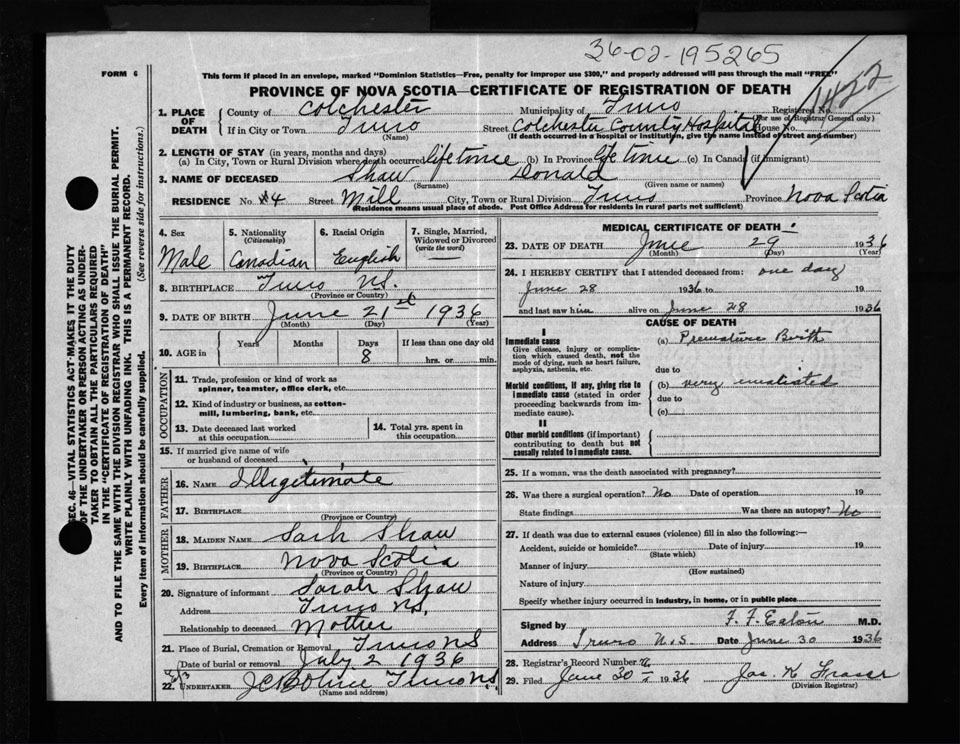 36-02-195265
FORM 6
This form if placed in an envelope, marked "Dominion Statistics—Free, penalty for improper use $300," and properly addressed will pass through the mail "FREE"
PROVINCE OF NOVA SCOTIA—CERTIFICATE OF REGISTRATION OF DEATH
1. PLACE OF DEATH
County of Colchester Municipality of Truro Registered No. 1422
(For use of Registrar General only)
If in City or Town Truro Street Colchester County Hospital House No.
(Name) (If death occurred in a hospital or institution, give the name instead of street and number)
2. LENGTH OF STAY (in years, months and days)
(a) In City, Town or Rural Division where death occurred life time (b) In Province life time (c) In Canada (if immigrant)
3. NAME OF DECEASED Shaw Donald
(Surname) (Given name or names)
RESIDENCE No. 44 Street Mill City, Town or Rural Division Truro Province Nova Scotia
(Residence means usual place of abode. Post Office Address for residents in rural parts not sufficient)
4. Sex
Male
5. Nationality
(Citizenship)
Canadian
6. Racial Origin
English
7. Single, Married, Widowed or Divorced
(write the word)
—
8. BIRTHPLACE Truro NS.
(Province or Country)
9. DATE OF BIRTH June 21st 1936
(Month) (Day) (Year)
10. AGE in
Years Months Days If less than one day old
8 hrs. or min.
OCCUPATION
11. Trade, profession or kind of work as
spinner, teamster, office clerk, etc.
12. Kind of industry or business, as cotton-
mill, lumbering, bank, etc.
13. Date deceased last worked
at this occupation
14. Total yrs. spent in
this occupation
15. If married give name of wife
or husband of deceased
FATHER
16. NAME Illigitimate
17. BIRTHPLACE
(Province or Country)
MOTHER
18. MAIDEN NAME Sarh Shaw
19. BIRTHPLACE Nova Scotia
(Province or Country)
20. Signature of informant Sarah Shaw
Address Truro NS.
Relationship to deceased Mother
21. Place of Burial, Cremation or Removal Truro NS
Date of burial or removal July 2 1936
22. UNDERTAKER Truro NS
(Name and address)
MEDICAL CERTIFICATE OF DEATH
23. DATE OF DEATH June 29 1936
(Month) (Day) (Year)
24. I HEREBY CERTIFY that I attended deceased from: one day
June 28 1936 to 19
and last saw him alive on June 28 1936
CAUSE OF DEATH
I
Immediate cause
Give disease, injury or compli-
cation which caused death, not the
mode of dying, such as heart failure,
asphyxia, asthenia, etc.
(a) Premature Birth
due to
Morbid conditions, if any, giving rise to
immediate cause (stated in order
proceeding backwards from im-
mediate cause).
(b) very imatiated
due to
(c)
II
Other morbid conditions (if important)
contributing to death but not
causally related to immediate cause.
25. If a woman, was the death associated with pregnancy?
26. Was there a surgical operation? No Date of operation 19
State findings Was there an autopsy? No
27. If death was due to external causes (violence) fill in also the following:—
Accident, suicide or homicide? Date of injury 19
(State which)
Manner of injury
(How sustained)
Nature of injury
Specify whether injury occurred in industry, in home, or in public place
Signed by F. F. Eaton M.D.
Address Truro N.S. Date June 30 1936
28. Registrar's Record Number
29. Filed June 30 1936 Jas. K Fraser
(Division Registrar)
SEC. 46—VITAL STATISTICS ACT—MAKES IT THE DUTY
OF THE UNDERTAKER OR PERSON ACTING AS UNDER-
TAKER TO OBTAIN ALL THE PARTICULARS REQUIRED
IN THE "CERTIFICATE OF REGISTRATION OF DEATH"
AND TO FILE THE SAME WITH THE DIVISION REGISTRAR WHO SHALL ISSUE THE BURIAL PERMIT.
WRITE PLAINLY WITH UNFADING INK. THIS IS A PERMANENT RECORD.
Every item of information should be carefully supplied. (See reverse side for instructions.)